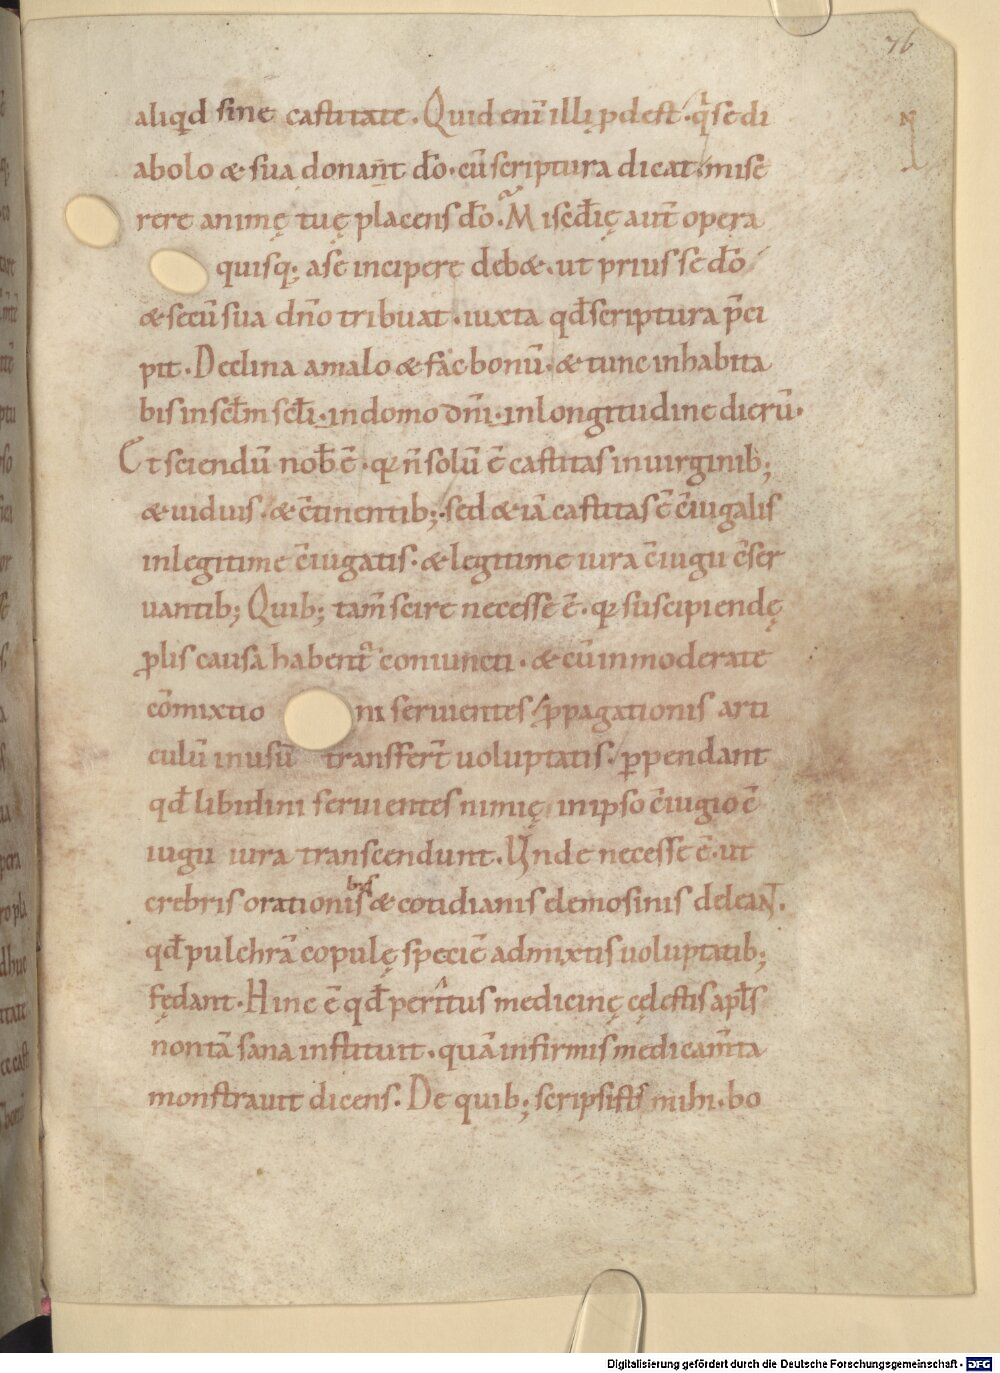 76
aliqd sine castitate. Quid eni̅ illi̧ pdest. q̇ se di
abolo & sua donan̅t dō. cū scriptura dicat. mise
rere animę tuę placens dō. Misc̄dię aut̄ opera
quisq; a se incipere deb&. ut prius se dō
& secū sua dn̄o tribuat. iuxta qđ scriptura p̄ci
pit. Declina a malo & fac bonū. & tunc inhabita
bis in sc̄lm sc̄li. in domo dn̄i. in longitudine dierū.
Et sciendū nob̄ ē. qꝛ n̄ solū ē castitas in uirginib;
& uiduis. & c̄tinentib;. sed & iā castitas ē c̄iugalis
in legitime c̄iugatis. & legitime iura c̄iugii c̄ser
uantib; Quib; tam̄ scire necesse ē. qꝛ suscipiendę
p̄lis causa habent̄ coniuncti. & cū inmoderate
cōmixtio ni seruientes ꝓpagationis arti
culū in usū transfert̄ uoluptatis. ꝑpendant
qđ libidini seruientes nimię in ipso c̄iugio c̄
iugii iura transcendunt. Unde necesse ē. ut
crebris orationibus & cotidianis elemosinis deleaNT.
qđ pulchrā copulę speciē admixtis uoluptatib;
fędant. Hinc ē qđ peritus medicinę cęlestis apl̄s
non tā sana instituit. quā infirmis medicam̄ta
monstrauit dicens. De quib; scripsistis mihi. bo
Digitalisierung gefördert durch die Deutsche Forschungsgemeinschaft - DFG